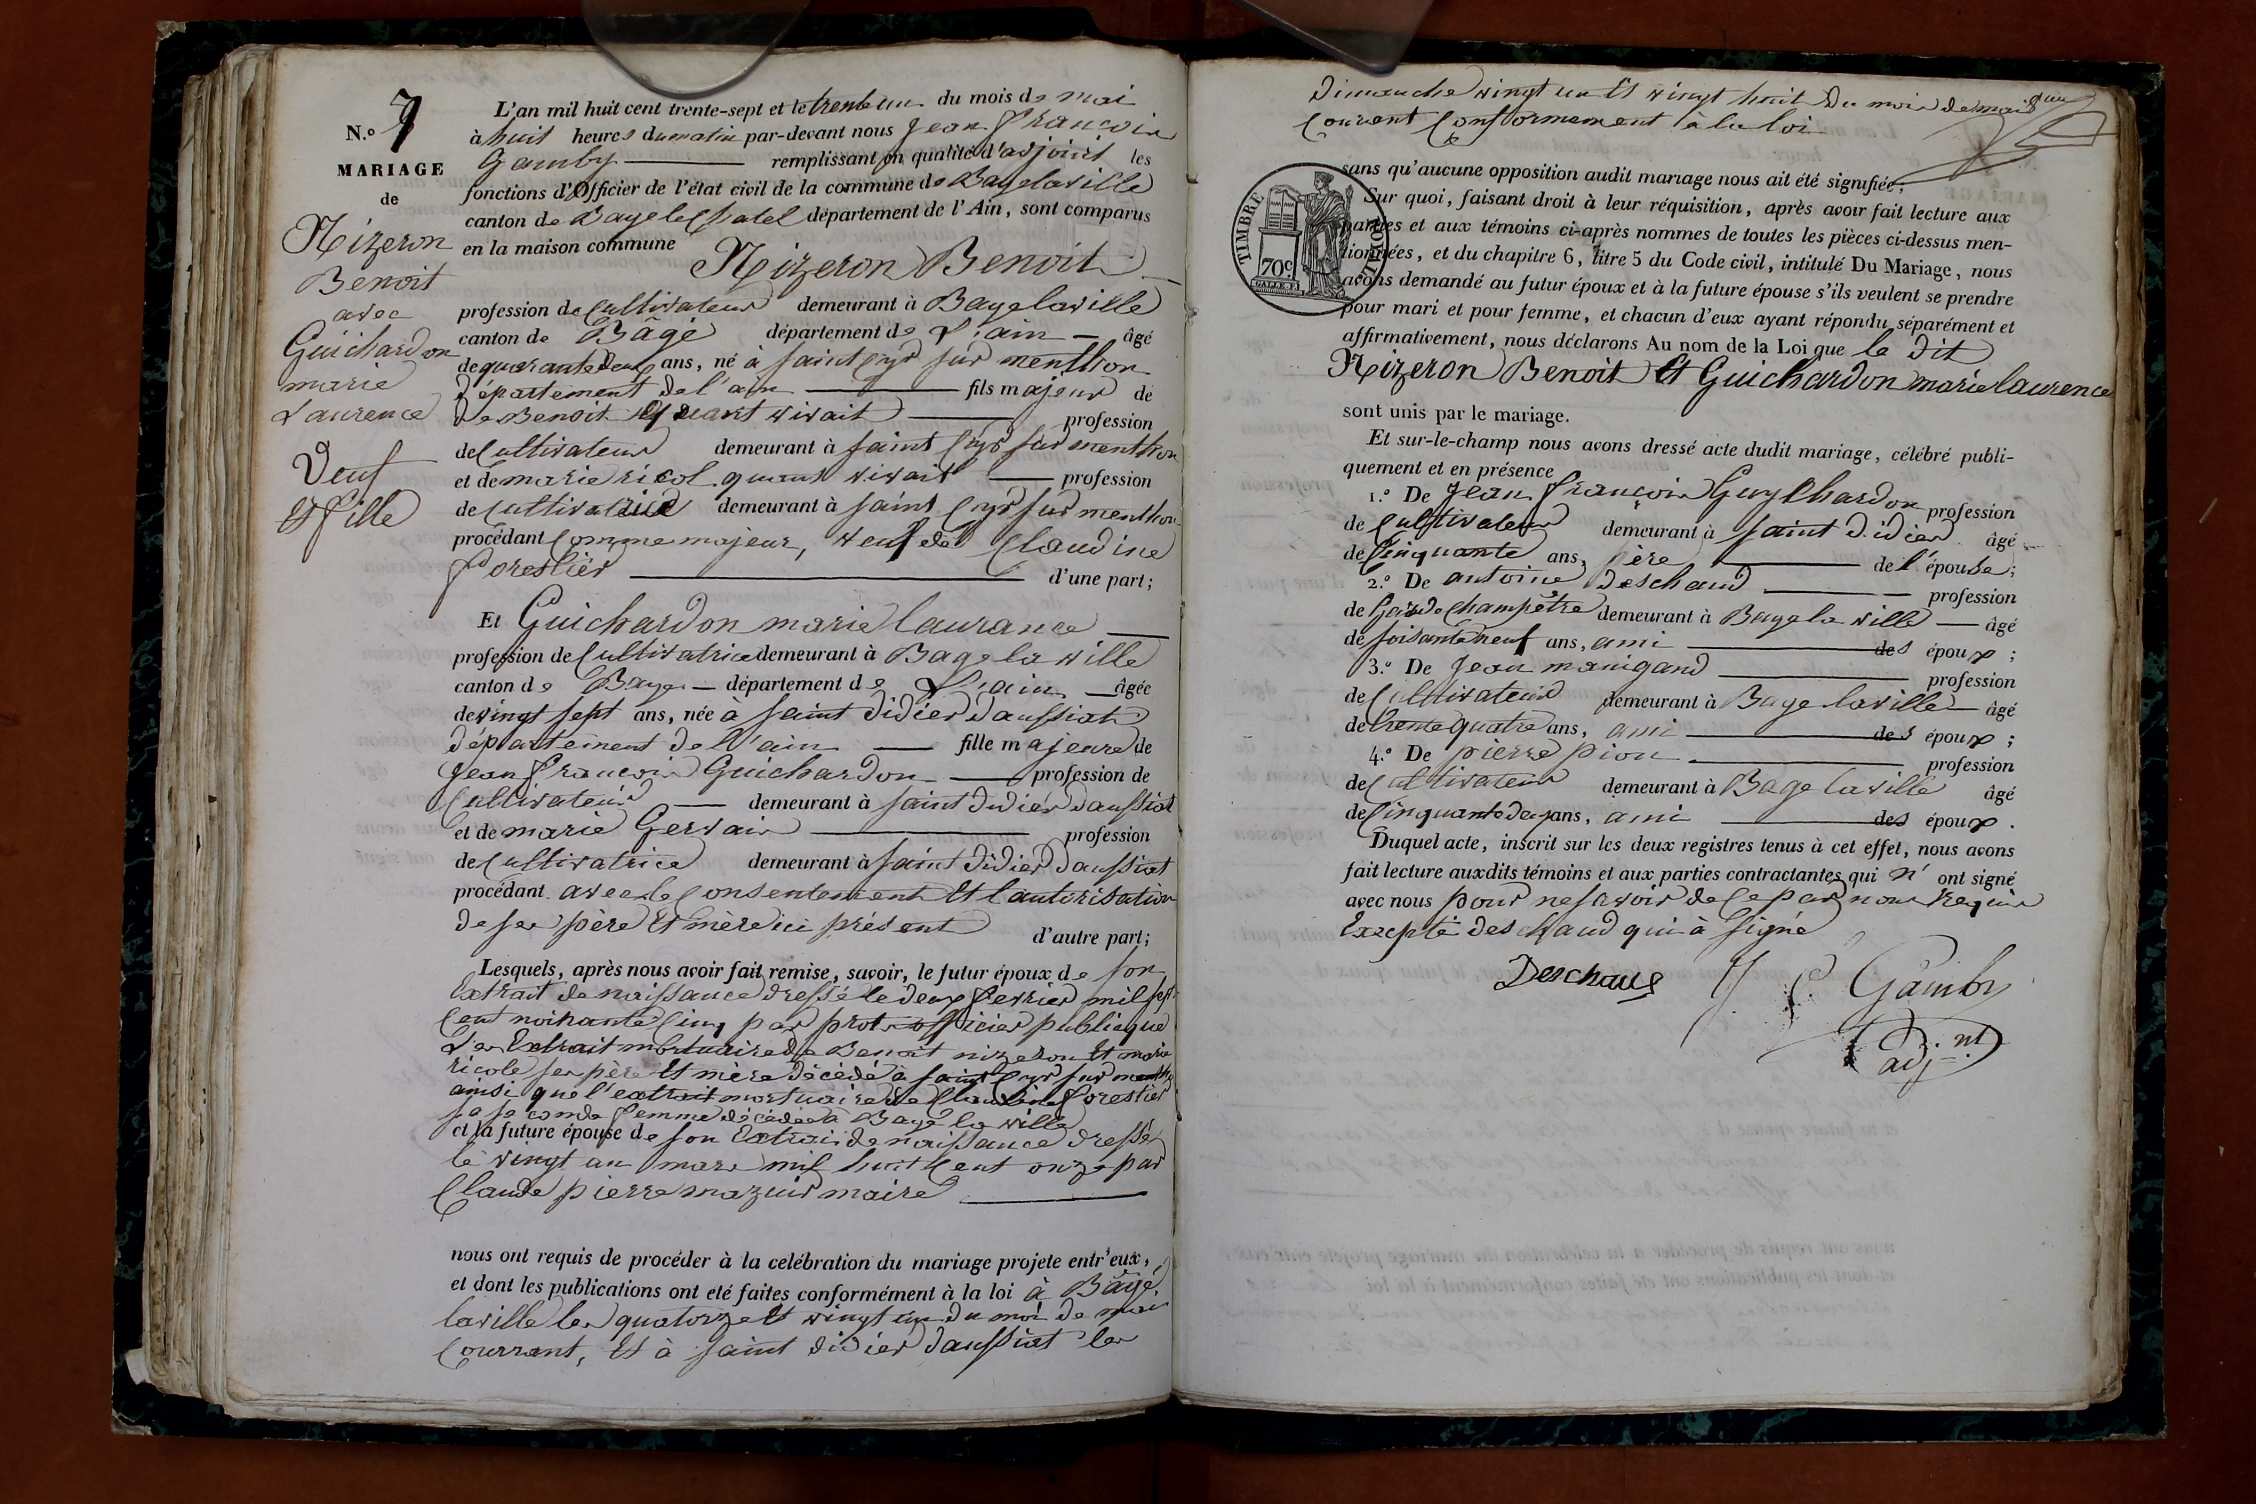 N.o 7
MARIAGE
de
Nizeron
Benoit
avec
Guichardon
marie
Laurence
Veuf
Et fille
L'an mil huit cent trente-sept et le trente un du mois de mai
à huit heures du matin par-devant nous Jean françois
Gamby remplissant en qualité d'adjoint les
fonctions d'Officier de l'état civil de la commune de Bagelaville
canton de Bage le Chatel département de l'Ain, sont comparus
en la maison commune Nizeron Benoit
profession de Cultivateur demeurant à Bagelaville
canton de Bâgé département de L'ain âgé
de quarante deux ans, né à saint Cyr sur menthon
département de l'ain fils majeur de
de Benoit quant vivait profession
de Cultivateur demeurant à saint Cyr sur menthon
et de marie ricol quant vivait profession
de Cultivatrice demeurant à saint Cyr sur menthon
procédant Comme majeur, veuf de Claudine
forestier d'une part;
Et Guichardon marie laurance
profession de Cultivatrice demeurant à Bage la ville
canton de Bage département de L'ain âgée
de vingt sept ans, née à saint didier daussiat
département de l'ain fille majeure de
Jean françois Guichardon profession de
Cultivateur demeurant à saint didier daussiat
et de marie Gervais profession
de Cultivatrice demeurant à saint didier daussiat
procédant avec le Consentement Et l'autorisation
de ses père Et mère ici présent d'autre part;
Lesquels, après nous avoir fait remise, savoir, le futur époux de son
Extrait de naissance dressé le deux fevrier mil sept
Cent noinante Cinq par prot officier publicque
L'es Extrait mortuaire de Benoit nizeron Et marie
ricole ses père Et mère décédé à saint Cyr sur menthon
ainsi que l'extrait mortuaire de Claudine forestier
sa seconde femme décédée à Bagé la ville
et la future épouse de son Extrai de naissance dressé
le vingt un mars mil huit Cent onze par
Claude pierre mazuir maire
nous ont requis de procéder à la celébration du mariage projete entr'eux,
et dont les publications ont eté faites conformément à la loi à Bâgé
laville les quatorze Et vingt un du moi de mai
Courrant, Et à saint didier daussiat les
Dimanche vingt un Et vingt huit du mois de mai
Courent Conformement à la loi
TIMBRE ROYAL
70c
sans qu'aucune opposition audit mariage nous ait été signifiée;
Sur quoi, faisant droit à leur réquisition, après avoir fait lecture aux
parties et aux témoins ci-après nommes de toutes les pièces ci-dessus men-
tionnées, et du chapitre 6, titre 5 du Code civil, intitulé Du Mariage, nous
avons demandé au futur époux et à la future épouse s'ils veulent se prendre
pour mari et pour femme, et chacun d'eux ayant répondu séparément et
affirmativement, nous déclarons Au nom de la Loi que le dit
Nizeron Benoit Et Guichardon marie laurence
sont unis par le mariage.
Et sur-le-champ nous avons dressé acte dudit mariage, célébré publi-
quement et en présence
1.o De Jean françois Guychardon profession
de Cultivateur demeurant à saint didier âgé
de Cinquante ans, père de l'épouse;
2.o De antoine deschaud profession
de Garde Champêtre demeurant à Bage la ville âgé
de soisante neuf ans, ami des époux;
3.o De Jean manigand profession
de Cultivateur demeurant à Bage laville âgé
de trente quatre ans, ami des époux;
4.o De pierre pion profession
de Cultivateur demeurant à Bage laville âgé
de Cinquante deux ans, ami des époux.
Duquel acte, inscrit sur les deux registres tenus à cet effet, nous avons
fait lecture auxdits témoins et aux parties contractantes qui n' ont signé
avec nous pour ne savoir de Ce par nous requis
Excepté deschaud qui à signé
Deschaud J f Gamby
adj.nt